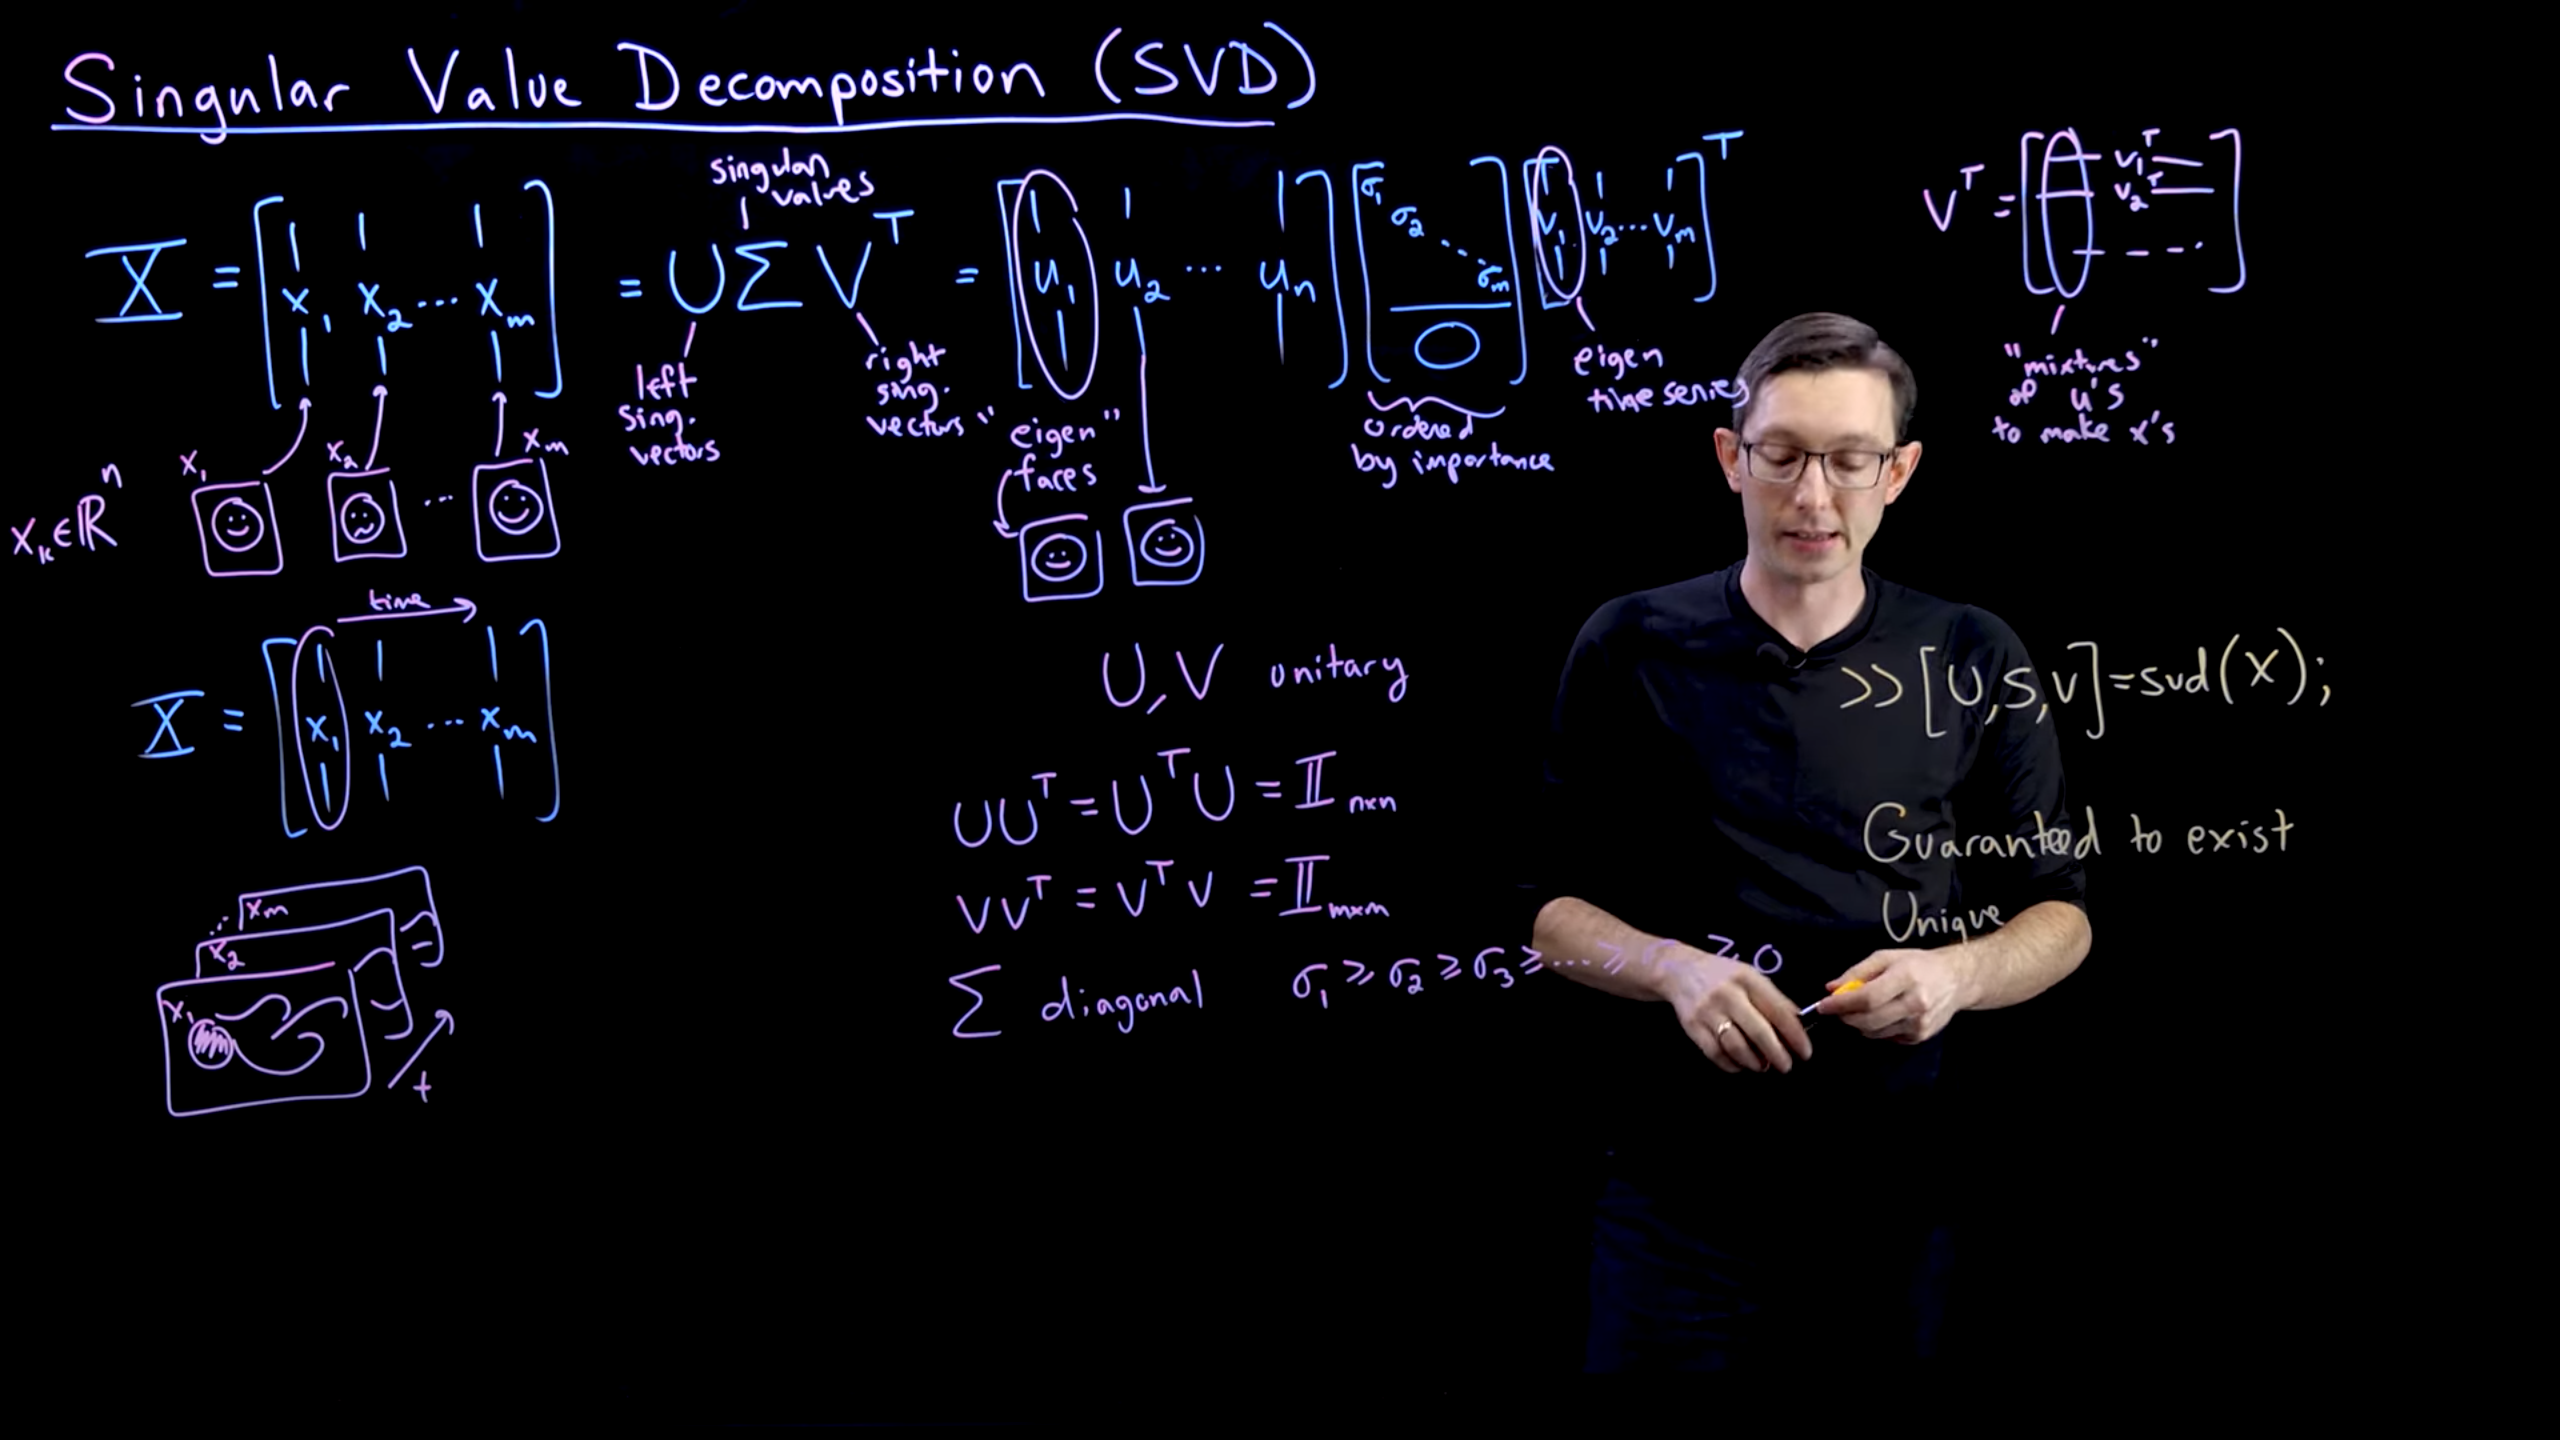 Singular Value Decomposition (SVD)
X = [x₁ x₂ ... xₘ] = UΣVᵀ = [u₁ u₂ ... uₙ] [σ₁ σ₂ ⋱ σₘ 0] [v₁ v₂ ... vₘ]ᵀ
singular
values
left
sing.
vectors
right
sing.
vectors
"eigen"
faces
ordered
by importance
eigen
time series
Vᵀ = [v₁ᵀ v₂ᵀ ...]
"mixtures"
of u's
to make x's
xₖ∈ℝⁿ
x₁ x₂ ... xₘ
time
X = [x₁ x₂ ... xₘ]
x₁
x₂
xₘ
t
U, V unitary
UUᵀ = UᵀU = 𝕀 n×n
VVᵀ = VᵀV = 𝕀 m×m
Σ diagonal σ₁ ≥ σ₂ ≥ σ₃ ≥ ... ≥ ≥ 0
>> [U,S,V]=svd(X);
Guaranteed to exist
Unique